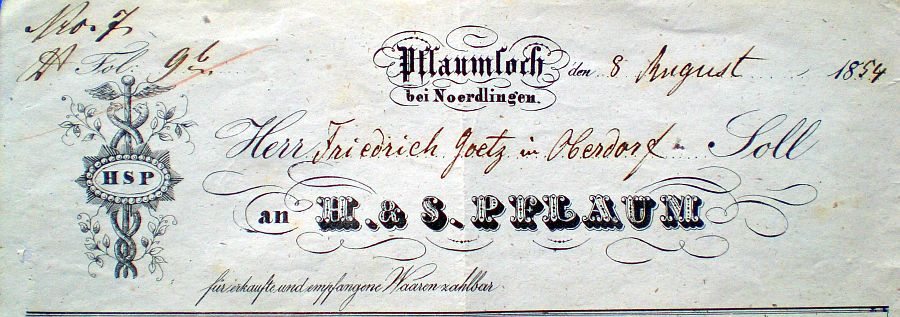 Nro. 7.
Fol. 9b
Pflaumloch den 8 August 1854
bei Noerdlingen.
HSP
Herr Friedrich Goetz in Oberdorf Soll
an H. & S. PFLAUM
für erkaufte und empfangene Waaren zahlbar